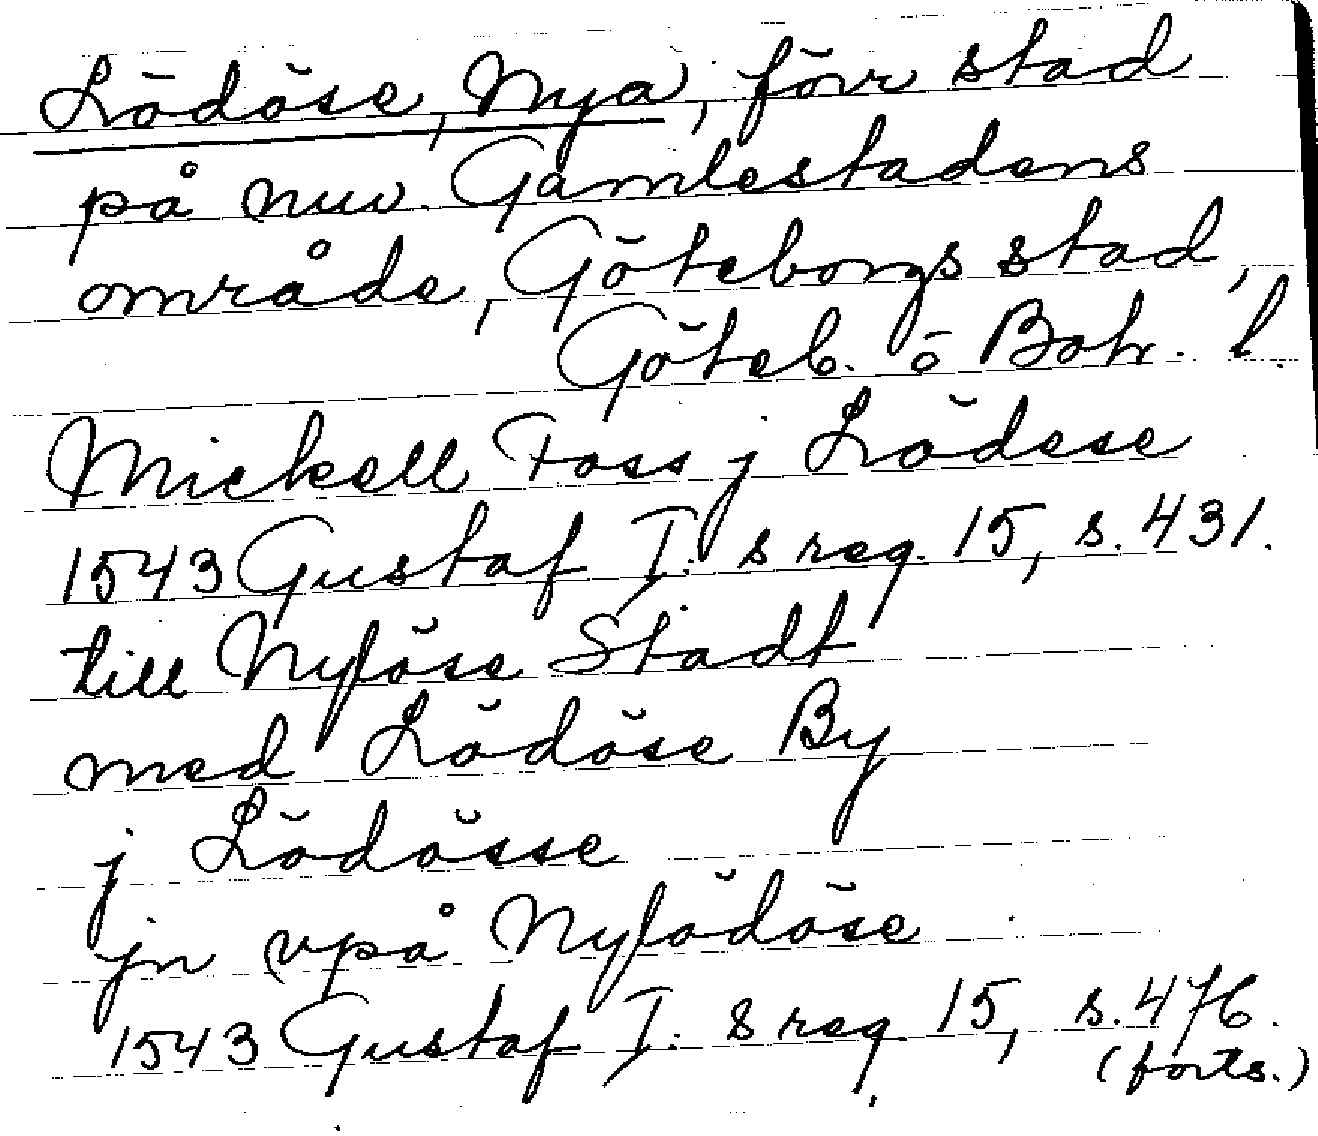 Lödöse, Nya, förr stad
på nuv. Gamlestadens
område, Göteborgs stad,
Göteb. o Boh. l.
Mickell Foss j Lödese
1543 Gustaf I:s reg. 15, s. 431.
till Nylöse Stadt
med Lödöse By
j Lödösse
jn vpå Nylödöse
1543 Gustaf I:s reg 15, s. 476.
(forts.)